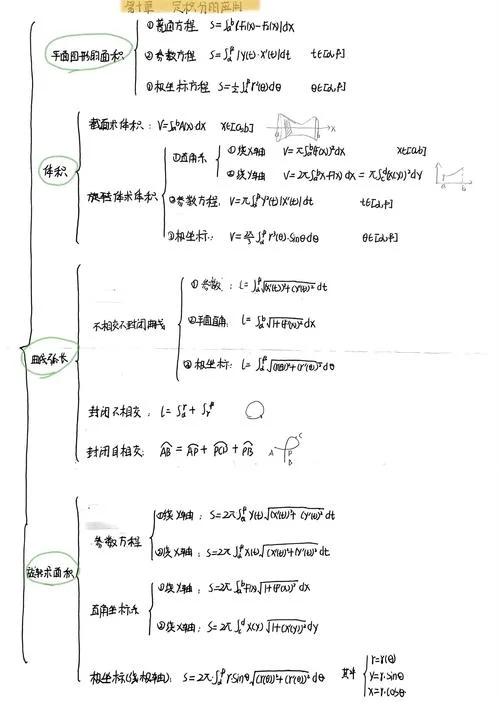 第十章 定积分的应用
平面图形的面积
①普通方程 S=∫ₐᵇ|f₂(x)-f₁(x)|dx
②参数方程 S=∫_α^β|y(t)·x'(t)|dt t∈[α,β]
③极坐标方程 S=½∫_α^β r²(θ)dθ θ∈[α,β]
体积
截面求体积：V=∫ₐᵇA(x)dx x∈[a,b]
x
旋转体求体积
①直角系
①绕X轴 V=π∫ₐᵇ(f(x))²dx x∈[a,b]
②绕y轴 V=2π∫ₐᵇx·f(x)dx=π∫_c^d(g(y))²dy
a b
②参数方程：V=π∫_α^β y²(t)|x'(t)|dt t∈[α,β]
③极坐标：V=2π/3∫_α^β r³(θ)·sinθdθ θ∈[α,β]
曲线弧长
不相交不封闭曲线
①参数：l=∫_α^β√((x'(t))²+(y'(t))²)dt
②平面直角：l=∫ₐᵇ√(1+(f'(x))²)dx
③极坐标：l=∫_α^β√((r(θ))²+(r'(θ))²)dθ
封闭不相交：l=∫_α^γ+∫_γ^β
封闭自相交：AB=AP+PCP+PB
A P C B
旋转求面积
参数方程
①绕X轴：S=2π∫_α^β y(t)√((x'(t))²+(y'(t))²)dt
②绕y轴：S=2π∫_α^β x(t)√((x'(t))²+(y'(t))²)dt
直角坐标系
①绕X轴：S=2π∫ₐᵇf(x)√(1+(f'(x))²)dx
②绕y轴：S=2π∫_c^d x(y)√(1+(x'(y))²)dy
极坐标(绕极轴)：S=2π·∫_α^β r·sinθ√((r(θ))²+(r'(θ))²)dθ 其中
r=r(θ)
y=r·sinθ
x=r·cosθ